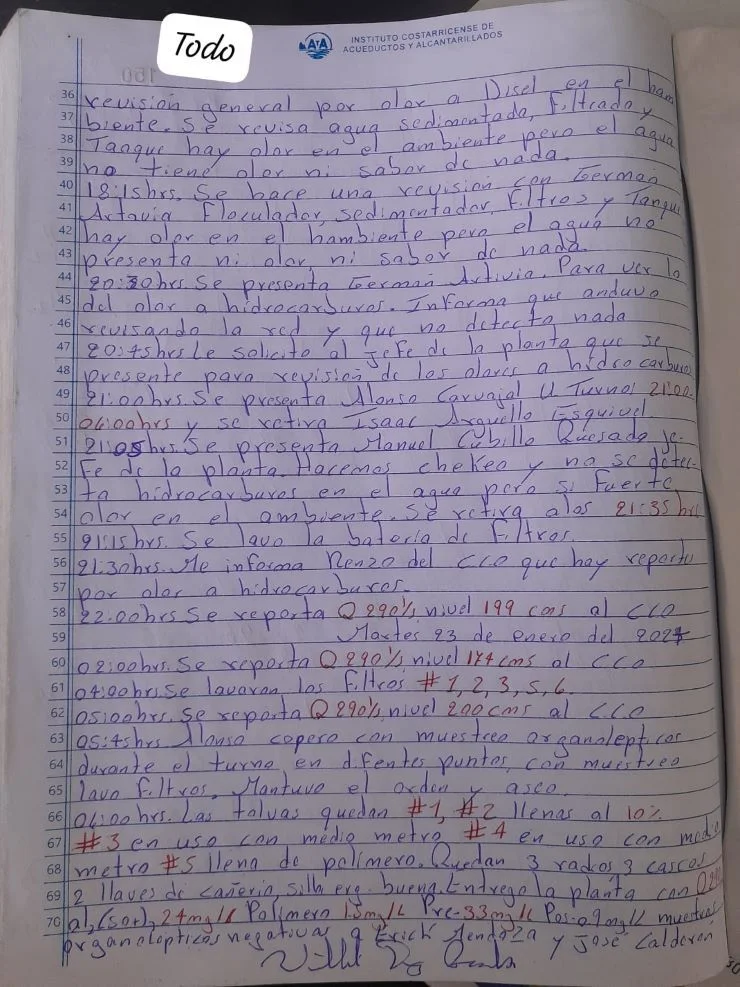 Todo
AyA
INSTITUTO COSTARRICENSE DE
ACUEDUCTOS Y ALCANTARILLADOS
36 revisión general por olor a Disel en el ham
37 biente. Se revisa agua sedimentada, Filtrado y
38 Tanque hay olor en el ambiente pero el agua
39 no tiene olor ni sabor de nada.
40 18:15hrs. Se hace una revisión con German
41 Artavia Floculador, sedimentador, Filtros y Tanque
42 hay olor en el hambiente pero el agua no
43 presenta ni olor, ni sabor de nada.
44 20:30hrs. Se presenta German Artivia. Para ver lo
45 del olor a hidrocarburos. Informa que anduvo
46 revisando la red y que no detecto nada
47 20:45hrs Le solicito al jefe de la planta que se
48 presente para revisión de los olores a hidrocarburos
49 21:00hrs. Se presenta Alonso Carvajal U Turno: 21:00-
50 06:00hrs y se retira Isaac Arguello Esquivel
51 21:05hrs. Se presenta Manuel Cubillo Quesada je-
52 Fe de la planta. Hacemos chekeo y no se detec-
53 ta hidrocarburos en el agua pero si Fuerte
54 olor en el ambiente. Se retira alos 21:35hrs
55 21:15hrs. Se lavo la batería de Filtros.
56 21:30hrs. Me informa Renzo del CCO que hay reporte
57 por olor a hidrocarburos.
58 22:00hrs Se reporta Q 290 l/s, nivel 199 cms al CCO
59 Martes 23 de enero del 2024
60 02:00hrs. Se reporta Q 290 l/s, nivel 174 cms al CCO
61 04:00hrs. Se lavaron los Filtros #1, 2, 3, 5, 6.
62 05:00hrs. Se reporta Q 290 l/s, nivel 200 cms al CCO
63 05:45hrs Alonso copero con muestreo organolepticos
64 durante el turno en difentes puntos, con muestreo
65 lavo filtros. Mantuvo el orden y aseo.
66 06:00hrs. Las tolvas quedan #1, #2 llenas al 10%
67 #3 en uso con medio metro, #4 en uso con medio
68 metro #5 llena de polímero. Quedan 3 rados, 3 cascos
69 2 llaves de cañeria, silla erg. buena. Entrego la planta con Q 290
70 al2(so4)3 24mg/L Polímero 15mg/L Pre-33mg/L Pos-09mg/L muestras
organolepticos negativas a Erick Mendoza y José Calderon